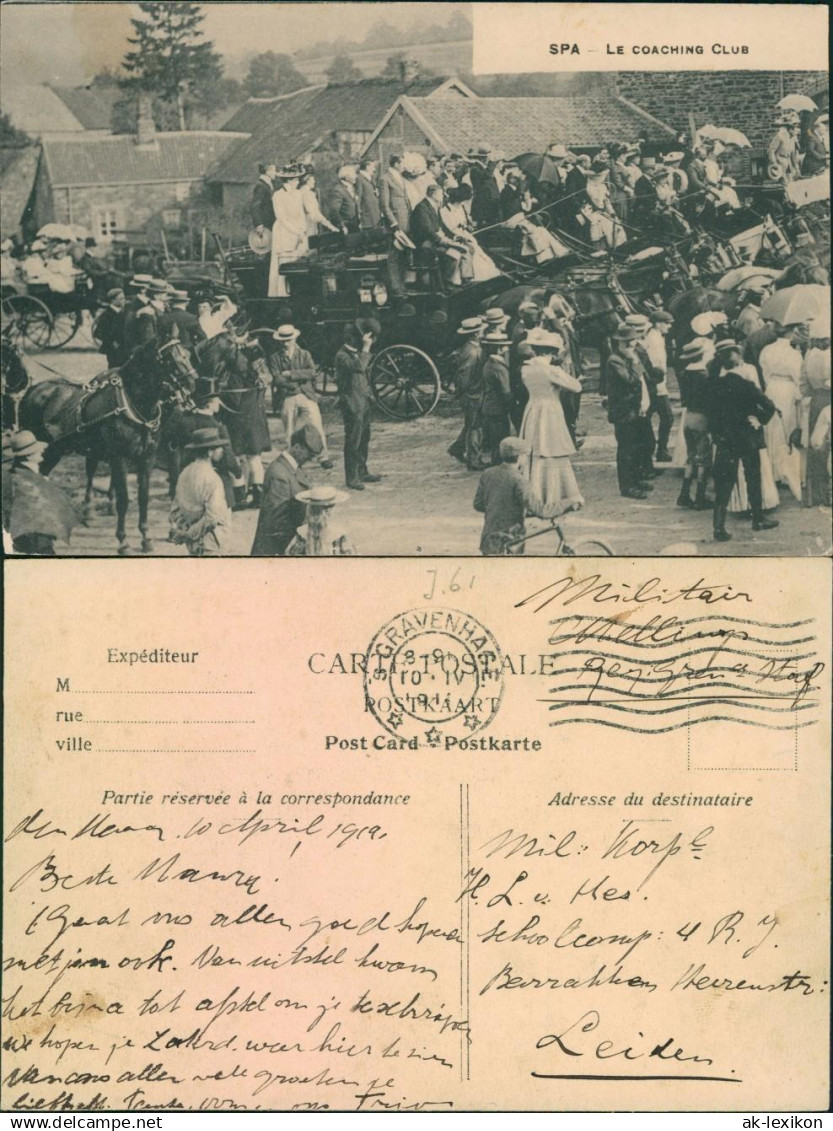 SPA – LE COACHING CLUB
J.61
Militair
Expéditeur
'S GRAVENHAGE
CARTE POSTALE
M
10 · IV
POSTKAART
rue
ville
Post Card Postkarte
Partie réservée à la correspondance
Adresse du destinataire
den 10 April 1919
Mil: Korpl
Beste
H. L. v. Hes.
Gaat ons allen goed hopen
Schoolcomp: 4 R. J.
met jou ook. Van uitstel kwam
Barrakken Heerenstr:
het bijna tot afstel om je te schrijven
Leiden.
we hopen je Zaterd. weer hier te zien
van ons allen vele groeten je
ak-lexikon
Delcampe.net